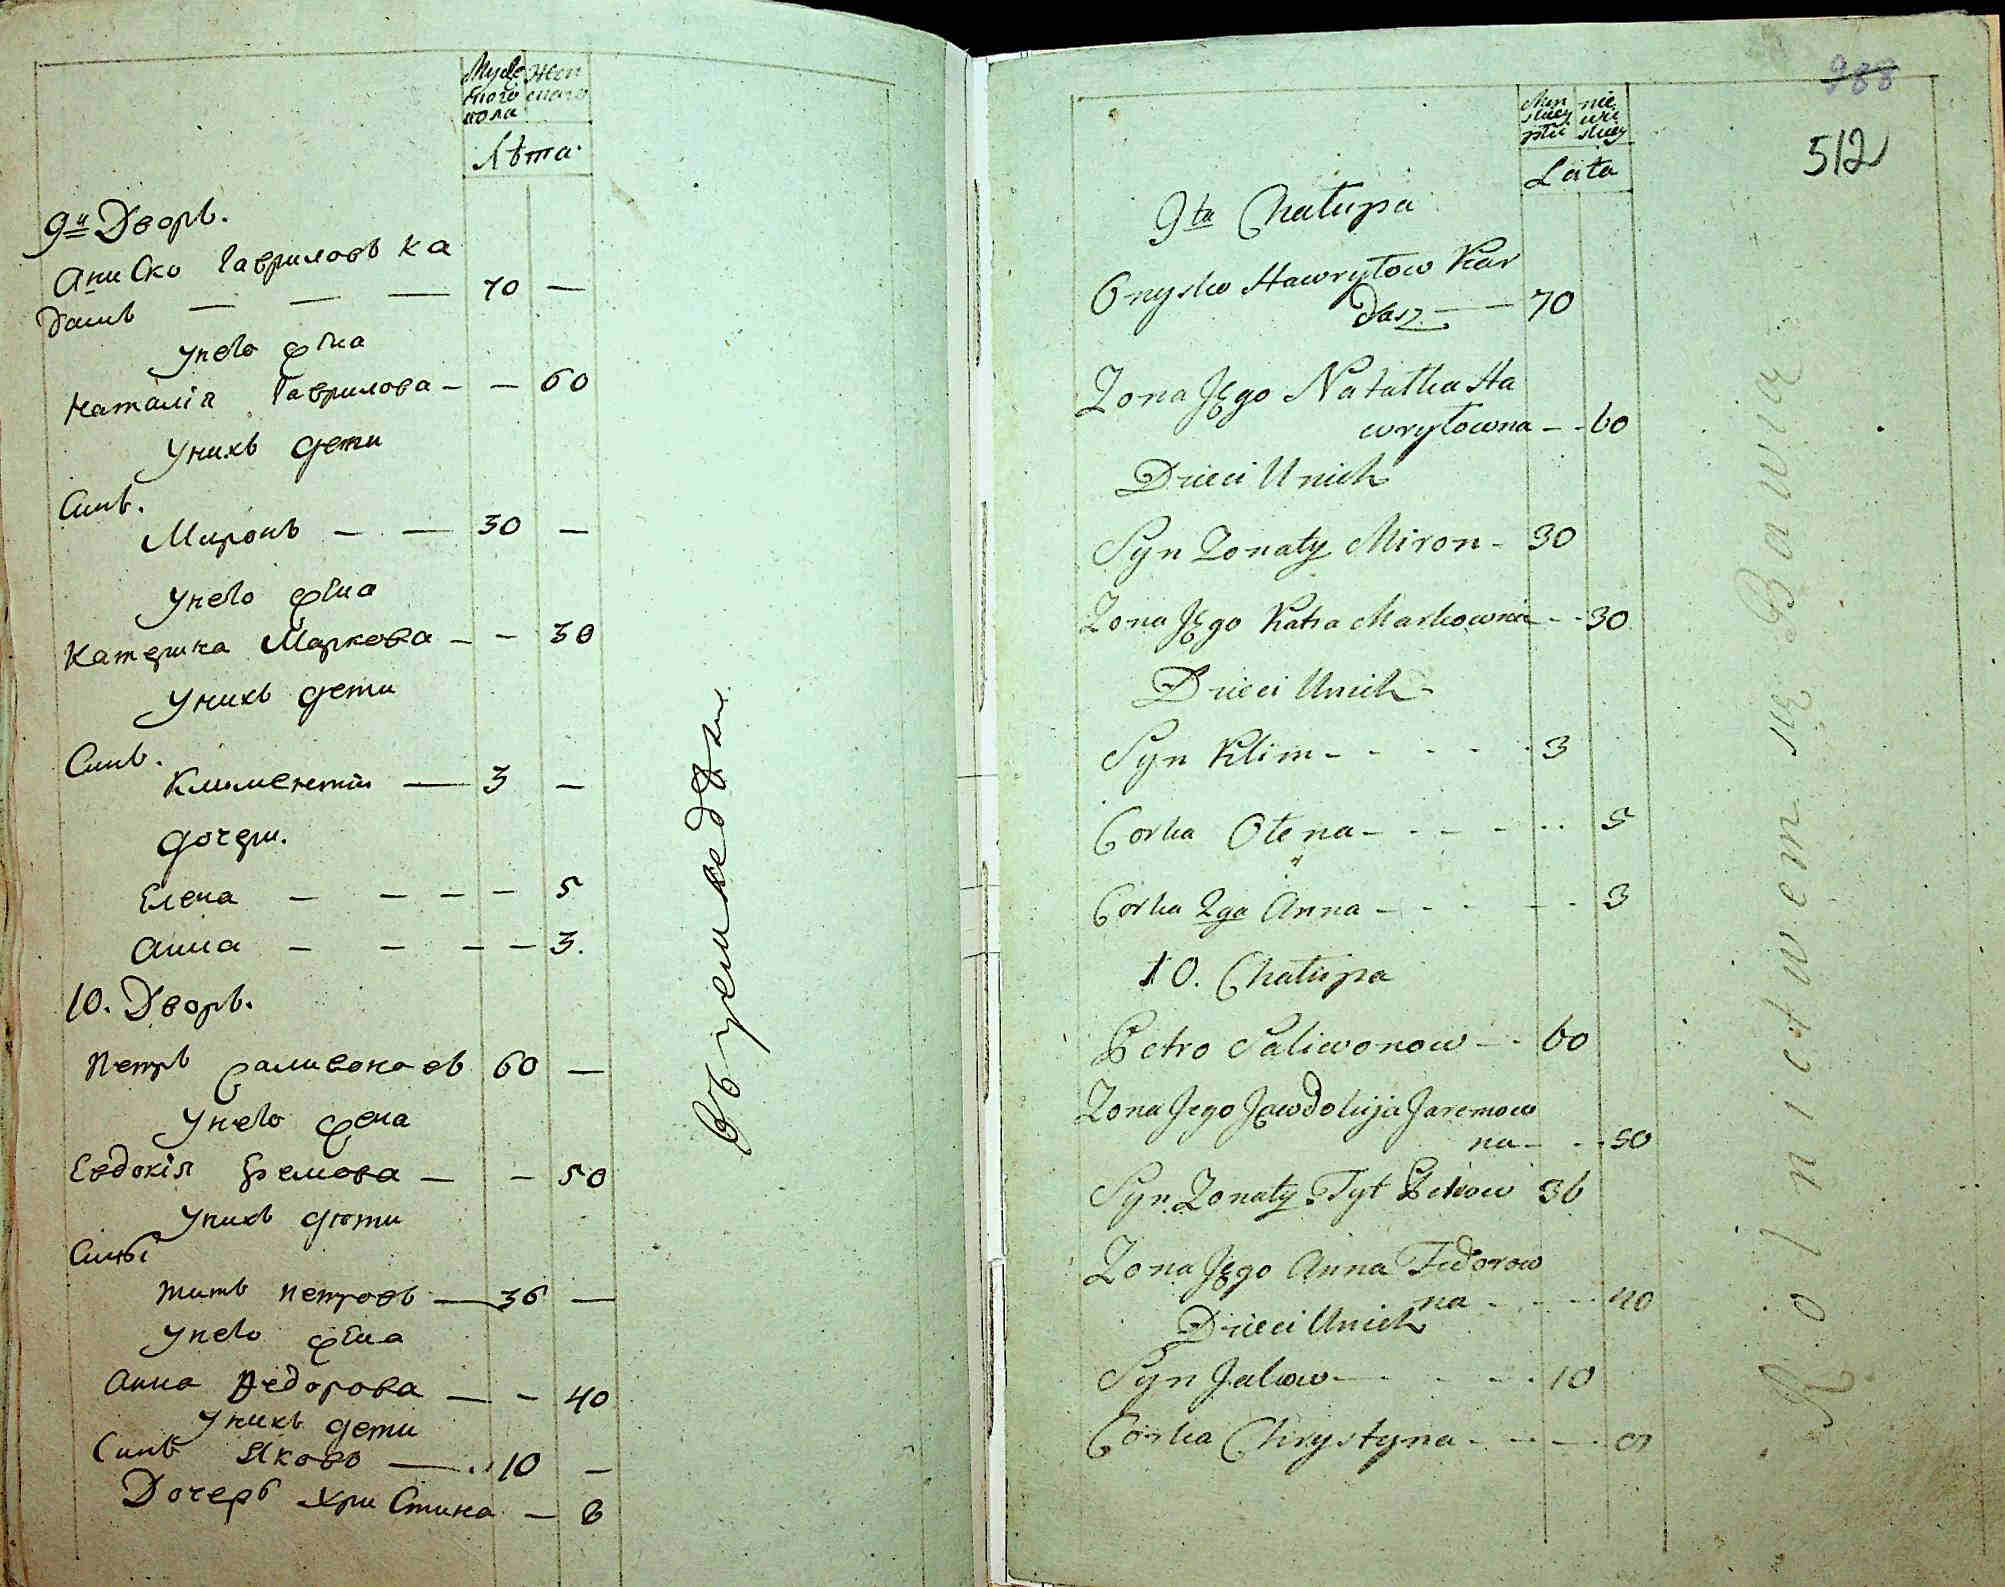 Мужескаго пола
Женскаго
Лѣта.
9й Дворъ.
Аниско Гавриловъ Ка
дашъ — — — 70 —
У него жена
Наталія Гаврилова — — 60
У нихъ дети
Синъ.
Миронъ — — 30 —
У него жена
Катерина Маркова — — 30
У нихъ дети
Синъ.
Климентій — 3 —
Дочери.
Елена — — — — 5
Анна — — — — 3.
10. Дворъ.
Петръ Саливоновъ 60 —
У него жена
Евдокія Яремова — — 50
У нихъ дѣти
Сины
Титъ Петровъ — 36 —
У него жена
Анна Федорова — — 40
У нихъ дети
Синъ Яковъ — 10 —
Дочерь Христина — 8
988
512
Męn skiey płci
nie wie skiey
Lata
9ta Chałupa
Onysko Hawryłow Kar
dasz — 70
Zona Jego Natalka Ha
wryłowna - - 60
Dzieci U nich
Syn Zonaty Miron - 30
Zona Jego Katra Markowna - - 30
Dzieci U nich -
Syn Klim - - - - - 3
Corka Olena - - - - - 5
Corka 2ga Anna - - - - - 3
10. Chałupa
Petro Saliwonow - - 60
Zona Jego Jawdokija Jaremow
na - - 50
Syn Zonaty Tyt Petrow 36
Zona Jego Anna Fedorow
na - - - 40
Dzieci U nich
Syn Jakow - - - - 10
Corka Chrystyna - - - - 8
Rolnictwem się Bawią